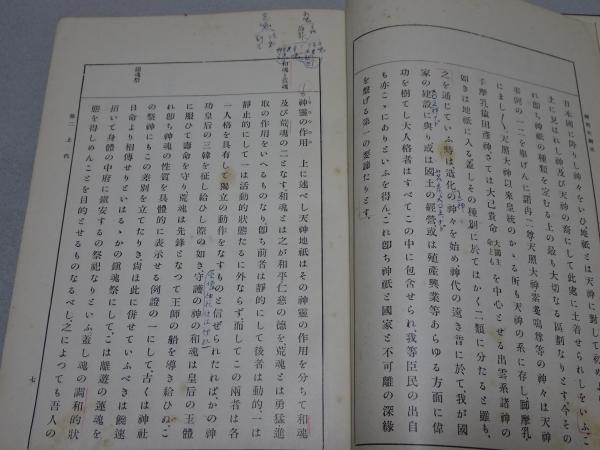 日本國に降りし神々をいひ地祇とは天神に對して初め
土に見はれし神及び天神の裔にして此處に土着せられしをいふこ
れ卽ち神祇の種類を定むる上の最も大切なる區劃なりとす、今その
事例の一二を擧げんに諾冉二尊天照大神素戔嗚尊等の神々は天神
にましまし天照大神以來皇統のかゝる所も天神の系に存し脚摩乳
手摩乳猿田彥神さては大己貴命を中心とせる出雲系諸神の
大國主命とも
如きは地祇に入る蓋しその種別に於てはかく二類に分たると雖も、
之を通じていふ時は造化の神々を始め神代の遠き昔に於て、我が國
家の建設に與り或は國土の經營或は殖產興業等あらゆる方面に偉
功を樹てし大人格者はすべてこの中に包含せられ、我等臣民の出自
も亦こゝにありといふを得ん、これ卽ち神祇と國家と不可離の深緣
を繫げる第一の要諦たりとす。
神靈の作用　上に述べし天神地祇はその神靈の作用を分ちて和魂
及び荒魂の二となす和魂とは之が和平仁慈の德を、荒魂とは勇猛進
取の作用をいへるものなり卽ち前者は靜的にして後者は動的一は
靜止的にして一は活動的狀態たるに外ならず、而してこの兩者は各
一人格を具有して獨立の動作をなすものと信ぜられたればかの神
功皇后の三韓を征し給ひし際の如き守護の神の和魂は皇后の玉體
に服ひて壽命を守り荒魂は先鋒となつて王師の船を導き給ひぬこ
れ卽ち神祇の性質を具體的に表示せる例證の一にして古くは神社
の祭神にもこの差別を立てたりき尙ほ此に併せていふべきは饒速
日命より相傳せりといはるゝかの鎭魂祭にして、こは離遊の運魂を
招いて身體の中府に鎭安するの祭祀なりといふ蓋し魂の調和的狀
態を得しめんことを目的とせるものなるべし、之によつても吾人の
和魂と荒魂
鎭魂祭
第二　上代
七